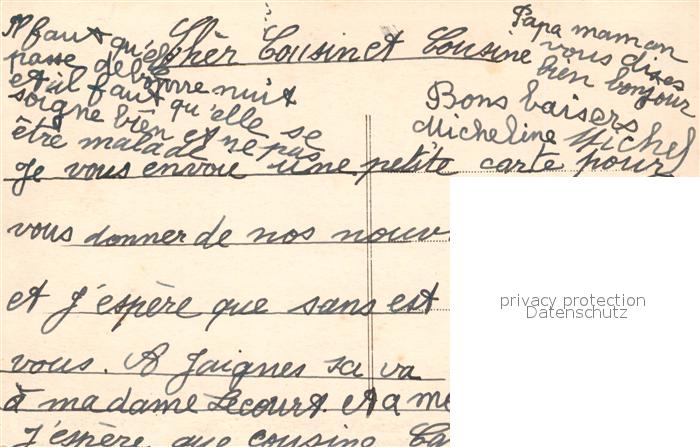 Il faut qu'elle
passe de bonne nuit
et il faut qu'elle se
soigne bien et ne pas
être malade
Cher Cousin et Cousine
Papa maman
vous dises
bien bonjour
Bons baisers
Micheline Michel
Je vous envoie une petite carte pour
vous donner de nos nouv
et J'espère que sans est
vous. A Jaignes sa va
à madame Lecourt. et a me
J'espère que cousine
privacy protection
Datenschutz